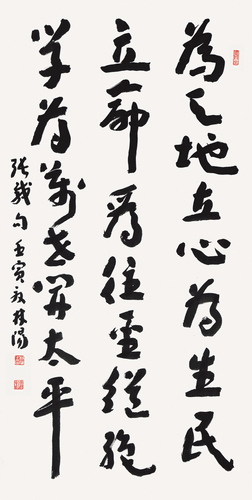 為天地立心為生民
立命為往聖繼絕
学為萬世開太平
張載句壬寅